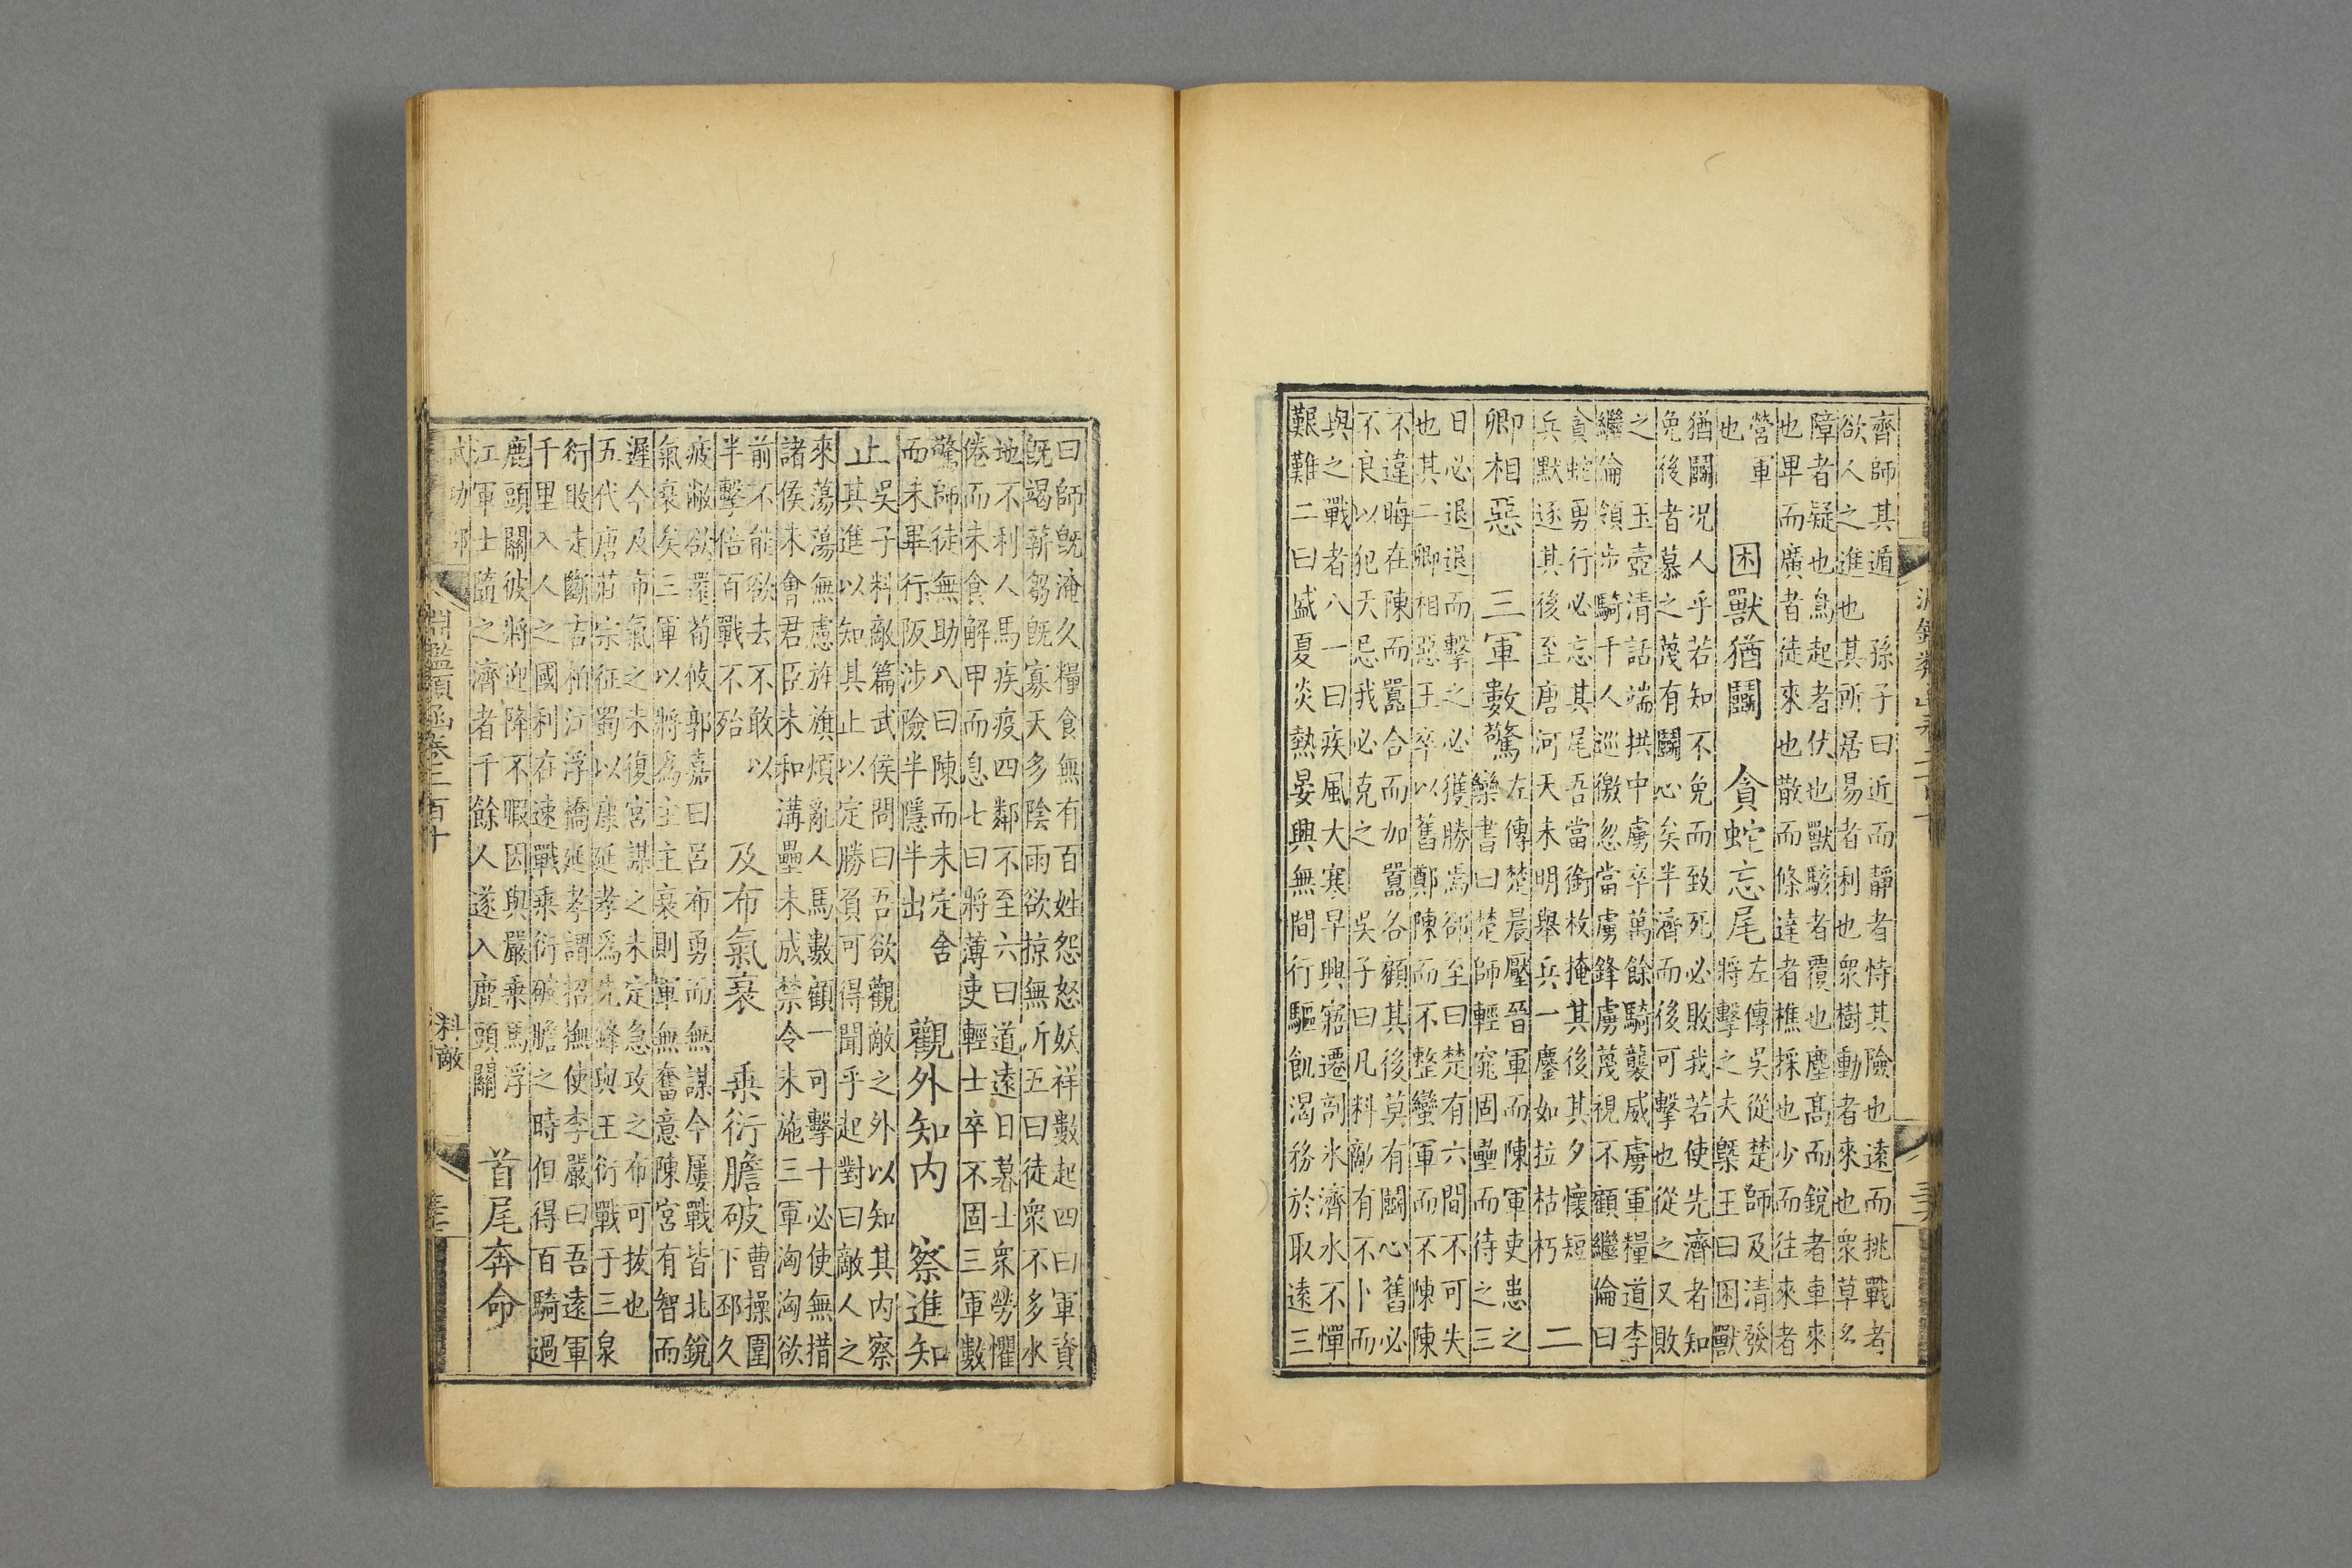 齊師其遁　孫子曰近而靜者恃其險也遠而挑戰者
欲人之進也其所居易者利也衆樹動者來也衆草多
障者疑也鳥起者伏也獸駭者覆也塵高而銳者車來
也卑而廣者徒來也散而條達者樵採也少而往來者
營軍
也
困獸猶鬭　貪蛇忘尾
左傳吳從楚師及清發
將擊之夫槩王曰困獸
猶鬭况人乎若知不免而致死必敗我若使先濟者知
免後者慕之蔑有鬭心矣半濟而後可擊也從之又敗
之　玉壺清話端拱中虜卒萬餘騎襲威虜軍糧道李
繼倫領步騎千人巡徼忽當虜鋒虜蔑視不顧繼倫曰
貪蛇勇行必忘其尾吾當銜枚掩其後其夕懷短
兵默逐其後至唐河天未明舉兵一鏖如拉枯朽
二
卿相惡　三軍數驚
左傳楚晨壓晉軍而陳軍吏患之
欒書曰楚師輕窕固壘而待之三
日必退退而擊之必獲勝焉郤至曰楚有六間不可失
也其二卿相惡王卒以舊鄭陳而不整蠻軍而不陳陳
不違晦在陳而囂合而加囂各顧其後莫有鬭心舊必
不良以犯天忌我必克之　吳子曰凡料敵有不卜而
與之戰者八一曰疾風大寒早興寤遷剖氷濟水不憚
艱難二曰盛夏炎熱晏興無間行驅飢渴務於取遠三
曰師旣淹久糧食無有百姓怨怒妖祥數起四曰軍資
旣竭薪芻旣寡天多陰雨欲掠無所五曰徒衆不多水
地不利人馬疾疫四鄰不至六曰道遠日暮士衆勞懼
倦而未食解甲而息七曰將薄吏輕士卒不固三軍數
驚師徒無助八曰陳而未定舍
而未畢行阪涉險半隱半出
觀外知內　察進知
止
吳子料敵篇武侯問曰吾欲觀敵之外以知其内察
其進以知其止以定勝負可得聞乎起對曰敵人之
來蕩蕩無慮旌旗煩亂人馬數顧一可擊十必使無措
諸侯未會君臣未和溝壘未成禁令未施三軍洶洶欲
前不能欲去不敢以
半擊倍百戰不殆
及布氣衰　乗衍膽破
曹操圍
下邳久
疲敝欲還荀攸郭嘉曰呂布勇而無謀今屢戰皆北銳
氣衰矣三軍以將爲主主衰則軍無奮意陳宮有智而
遲今及布氣之未復宮謀之未定急攻之布可拔也
五代唐莊宗征蜀以康延孝爲先鋒與王衍戰于三泉
衍敗走斷吉柏江浮橋延孝謂招撫使李嚴曰吾遠軍
千里入人之國利在速戰乗衍破膽之時但得百騎過
鹿頭關彼將迎降不暇因與嚴乗馬浮
江軍士隨之濟者千餘人遂入鹿頭關
首尾奔命
淵鑑類函卷三百十
料敵